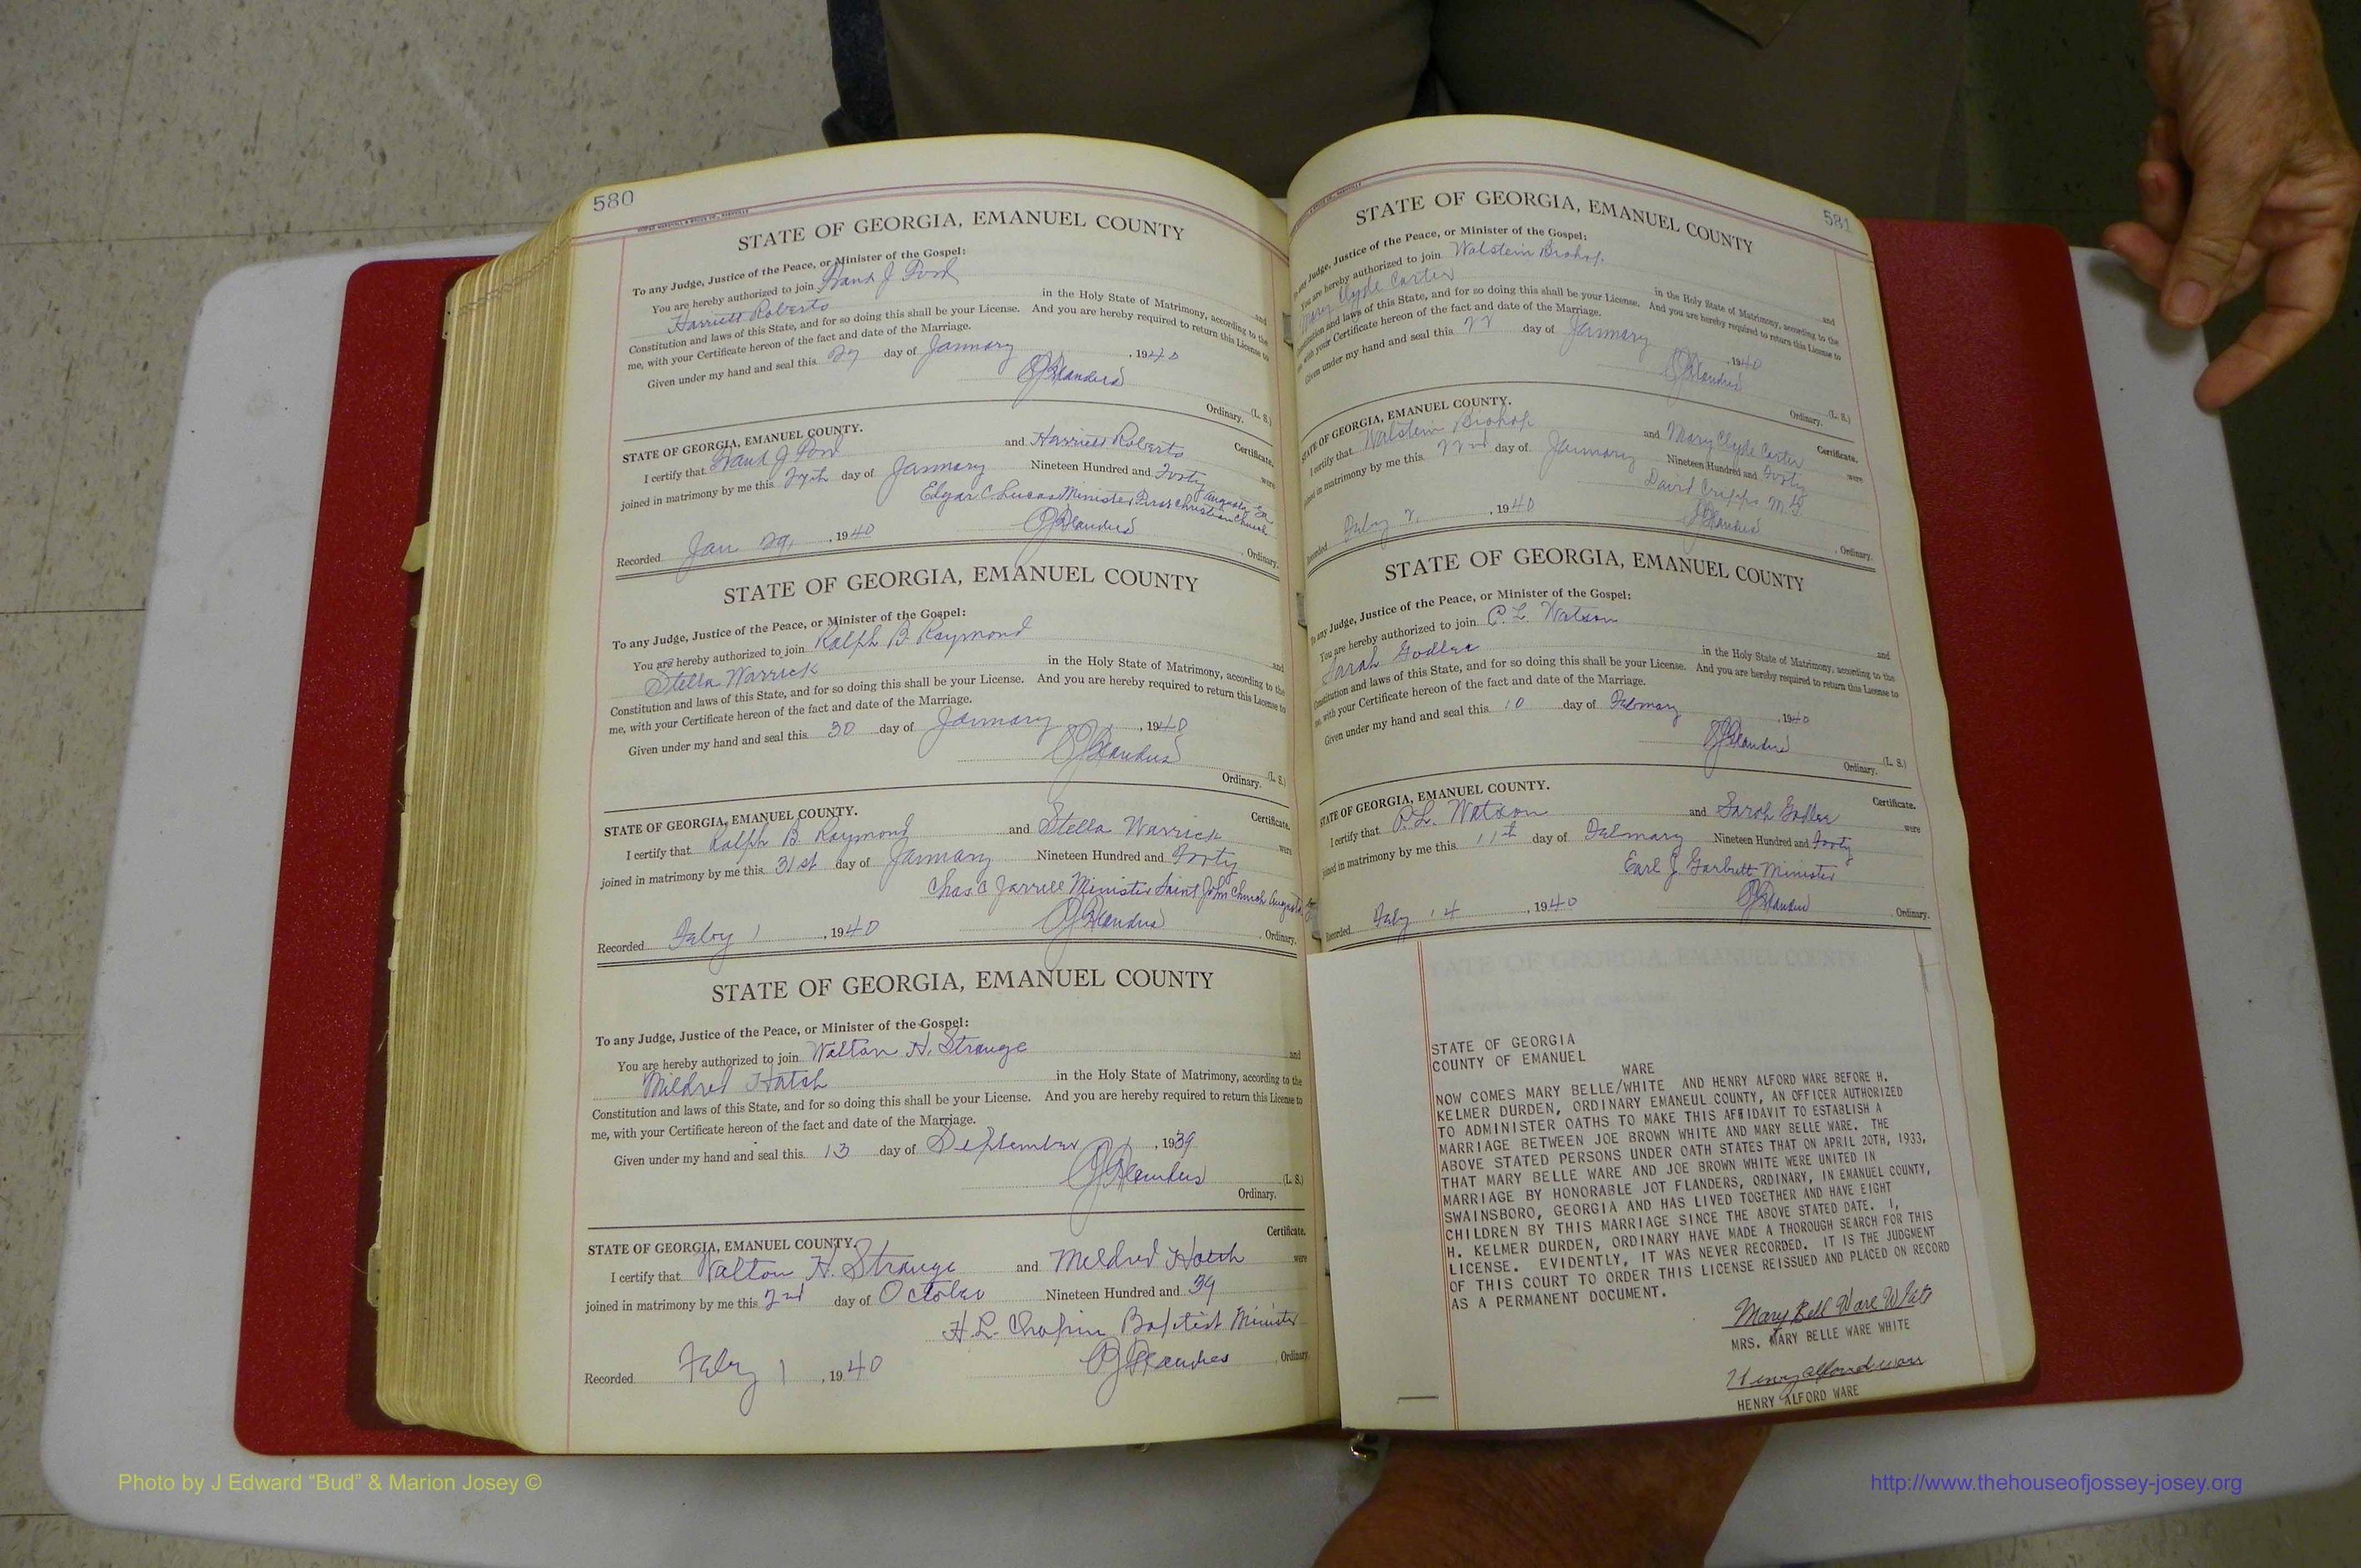 580
STATE OF GEORGIA, EMANUEL COUNTY
To any Judge, Justice of the Peace, or Minister of the Gospel:
You are hereby authorized to join Frank J. Ford and
Harriett Roberts in the Holy State of Matrimony, according to the
Constitution and laws of this State, and for so doing this shall be your License. And you are hereby required to return this License to
me, with your Certificate hereon of the fact and date of the Marriage.
Given under my hand and seal this 27 day of January, 1940
(L. S.)
Ordinary.
STATE OF GEORGIA, EMANUEL COUNTY. Certificate.
I certify that Frank J Ford and Harriett Roberts were
joined in matrimony by me this 27th day of January Nineteen Hundred and Forty
Edgar C. Lucas Minister First Christian Church Augusta Ga
Recorded Jan 29, 1940 Ordinary.
STATE OF GEORGIA, EMANUEL COUNTY
To any Judge, Justice of the Peace, or Minister of the Gospel:
You are hereby authorized to join Ralph B. Raymond and
Stella Warrick in the Holy State of Matrimony, according to the
Constitution and laws of this State, and for so doing this shall be your License. And you are hereby required to return this License to
me, with your Certificate hereon of the fact and date of the Marriage.
Given under my hand and seal this 30 day of January, 1940
(L. S.)
Ordinary.
STATE OF GEORGIA, EMANUEL COUNTY. Certificate.
I certify that Ralph B. Raymond and Stella Warrick were
joined in matrimony by me this 31st day of January Nineteen Hundred and Forty
Chas. C Jarrell Minister Saint John Church Augusta
Recorded Feby 1, 1940 Ordinary.
STATE OF GEORGIA, EMANUEL COUNTY
To any Judge, Justice of the Peace, or Minister of the Gospel:
You are hereby authorized to join Walton H. Strange and
Mildred Hatch in the Holy State of Matrimony, according to the
Constitution and laws of this State, and for so doing this shall be your License. And you are hereby required to return this License to
me, with your Certificate hereon of the fact and date of the Marriage.
Given under my hand and seal this 13 day of September, 1939
(L. S.)
Ordinary.
Certificate.
STATE OF GEORGIA, EMANUEL COUNTY.
I certify that Walton H. Strange and Mildred Hatch were
joined in matrimony by me this 2nd day of October Nineteen Hundred and 39
H. L. Chapin Baptist Minister
Recorded Feby 1, 1940 Ordinary
581
STATE OF GEORGIA, EMANUEL COUNTY
To any Judge, Justice of the Peace, or Minister of the Gospel:
You are hereby authorized to join Walstein Bishop and
Mary Clyde Carter in the Holy State of Matrimony, according to the
Constitution and laws of this State, and for so doing this shall be your License. And you are hereby required to return this License to
me, with your Certificate hereon of the fact and date of the Marriage.
Given under my hand and seal this 22 day of January, 1940
(L. S.)
Ordinary.
STATE OF GEORGIA, EMANUEL COUNTY. Certificate.
I certify that Walstein Bishop and Mary Clyde Carter were
joined in matrimony by me this 22nd day of January Nineteen Hundred and Forty
David Cripps M.G.
Recorded Feby 2, 1940 Ordinary.
STATE OF GEORGIA, EMANUEL COUNTY
To any Judge, Justice of the Peace, or Minister of the Gospel:
You are hereby authorized to join P. L. Watson and
Sarah Godlee in the Holy State of Matrimony, according to the
Constitution and laws of this State, and for so doing this shall be your License. And you are hereby required to return this License to
me, with your Certificate hereon of the fact and date of the Marriage.
Given under my hand and seal this 10 day of February, 1940
(L. S.)
Ordinary.
STATE OF GEORGIA, EMANUEL COUNTY. Certificate.
I certify that P. L. Watson and Sarah Godlee were
joined in matrimony by me this 11th day of February Nineteen Hundred and Forty
Earl J. Garbutt Minister
Recorded Feby 14, 1940 Ordinary.
STATE OF GEORGIA
COUNTY OF EMANUEL
WARE
NOW COMES MARY BELLE/WHITE AND HENRY ALFORD WARE BEFORE H.
KELMER DURDEN, ORDINARY EMANEUL COUNTY, AN OFFICER AUTHORIZED
TO ADMINISTER OATHS TO MAKE THIS AFFIDAVIT TO ESTABLISH A
MARRIAGE BETWEEN JOE BROWN WHITE AND MARY BELLE WARE. THE
ABOVE STATED PERSONS UNDER OATH STATES THAT ON APRIL 20TH, 1933,
THAT MARY BELLE WARE AND JOE BROWN WHITE WERE UNITED IN
MARRIAGE BY HONORABLE JOT FLANDERS, ORDINARY, IN EMANUEL COUNTY,
SWAINSBORO, GEORGIA AND HAS LIVED TOGETHER AND HAVE EIGHT
CHILDREN BY THIS MARRIAGE SINCE THE ABOVE STATED DATE. I,
H. KELMER DURDEN, ORDINARY HAVE MADE A THOROUGH SEARCH FOR THIS
LICENSE. EVIDENTLY, IT WAS NEVER RECORDED. IT IS THE JUDGMENT
OF THIS COURT TO ORDER THIS LICENSE REISSUED AND PLACED ON RECORD
AS A PERMANENT DOCUMENT.
Mary Bell Ware White
MRS. MARY BELLE WARE WHITE
Henry alford ware
HENRY ALFORD WARE
Photo by J Edward “Bud” & Marion Josey ©
http://www.thehouseofjossey-josey.org